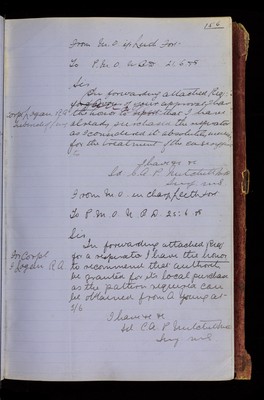 156
From M.O. i/c Leith Fort
To P.M.O. N.B.D. 21.6.
Sir
In forwarding attached Req:
your approval, I have
the honor to report that I have
already purchased the respirator
as I considered it absolutely necessary
for the treatment of the case
I have &c
Sd C.A.P. Mitchell
Surg.
From M.O. in charge Leith Fort
To P.M.O. N.B.D. 21.6.
Sir,
In forwarding attached Req
for a respirator I have the honor
to recommend that authority
be granted for its local purchase
as the pattern required can
be obtained from A Young at
3/6
I have &c
Sd C.A.P. Mitchell
Surg.
For Corpl
Logan R.A.